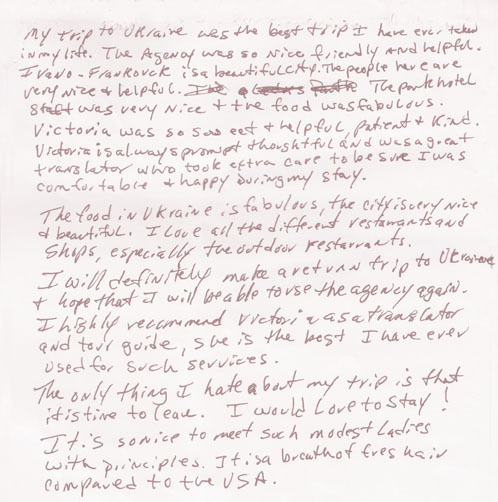 My trip to Ukraine was the best trip I have ever taken
in my life. The Agency was so nice friendly and helpful.
Ivavo-Frankovck is a beautiful city. The people here are
very nice & helpful. The Park hotel
staff was very nice & the food was fabulous.
Victoria was so sweet & helpful, patient & kind.
Victoria is always prompt thoughtful and was a great
translator who took extra care to be sure I was
comfortable & happy during my stay.
The food in Ukraine is fabulous, the city is very nice
& beautiful. I love all the different restaurants and
shops, especially the outdoor restaurants.
I will definitely make a return trip to Ukraine
& hope that I will be able to use the agency again.
I highly recommend Victoria as a translator
and tour guide, she is the best I have ever
used for such services.
The only thing I hate about my trip is that
it is time to leave. I would love to stay!
It is so nice to meet such modest ladies
with principles. It is a breath of fresh air
compared to the USA.